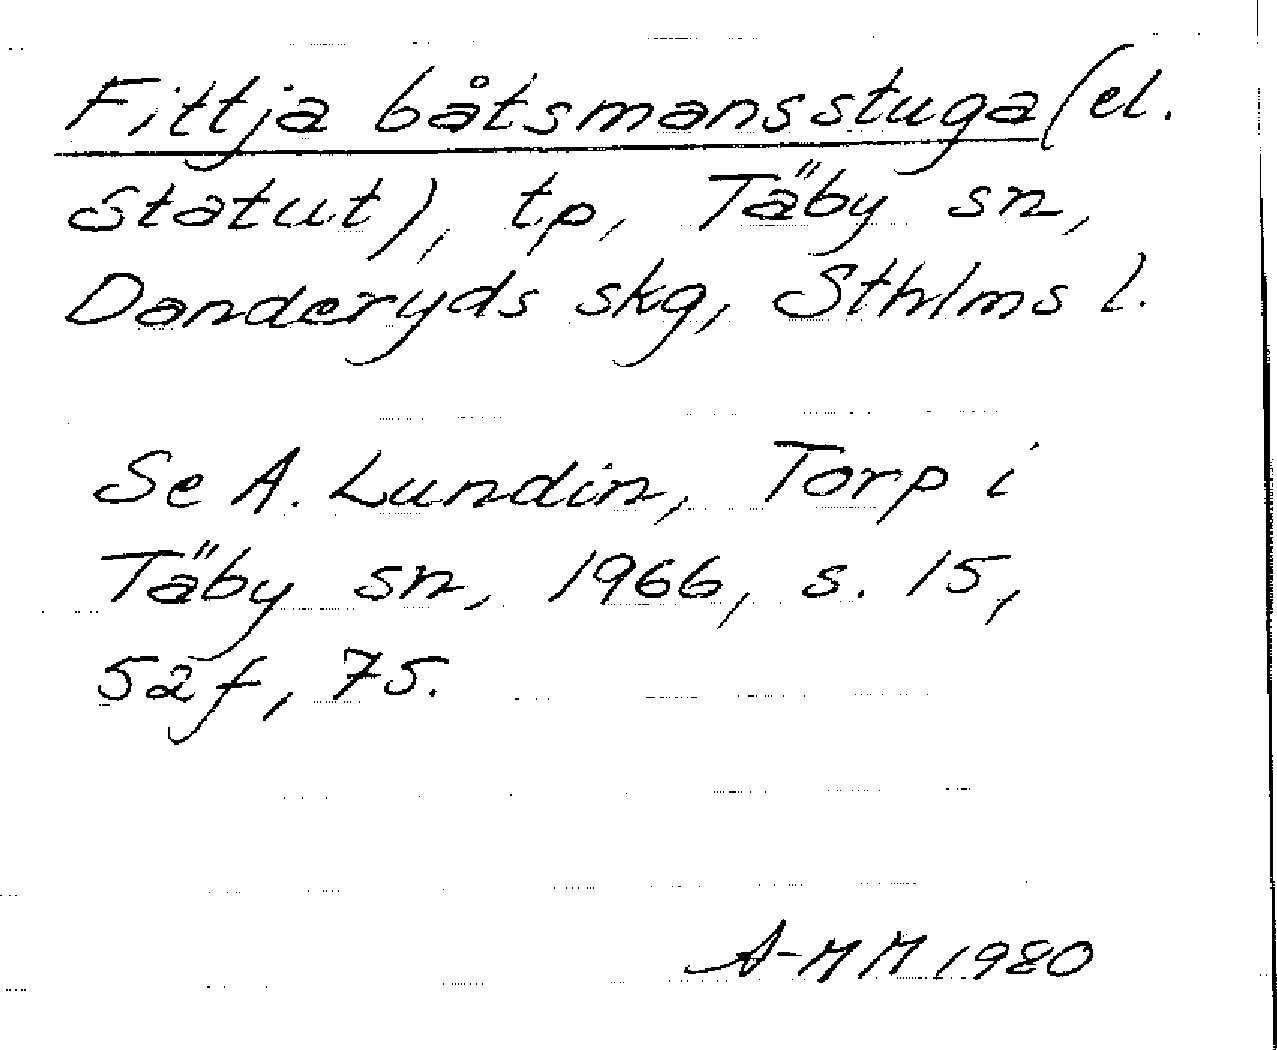 Fittja båtsmansstuga (el.
statut), tp, Täby sn,
Danderyds skg, Sthlms l.
Se A. Lundin, Torp i
Täby sn, 1966, s. 15,
52f, 75.
A-MM 1980